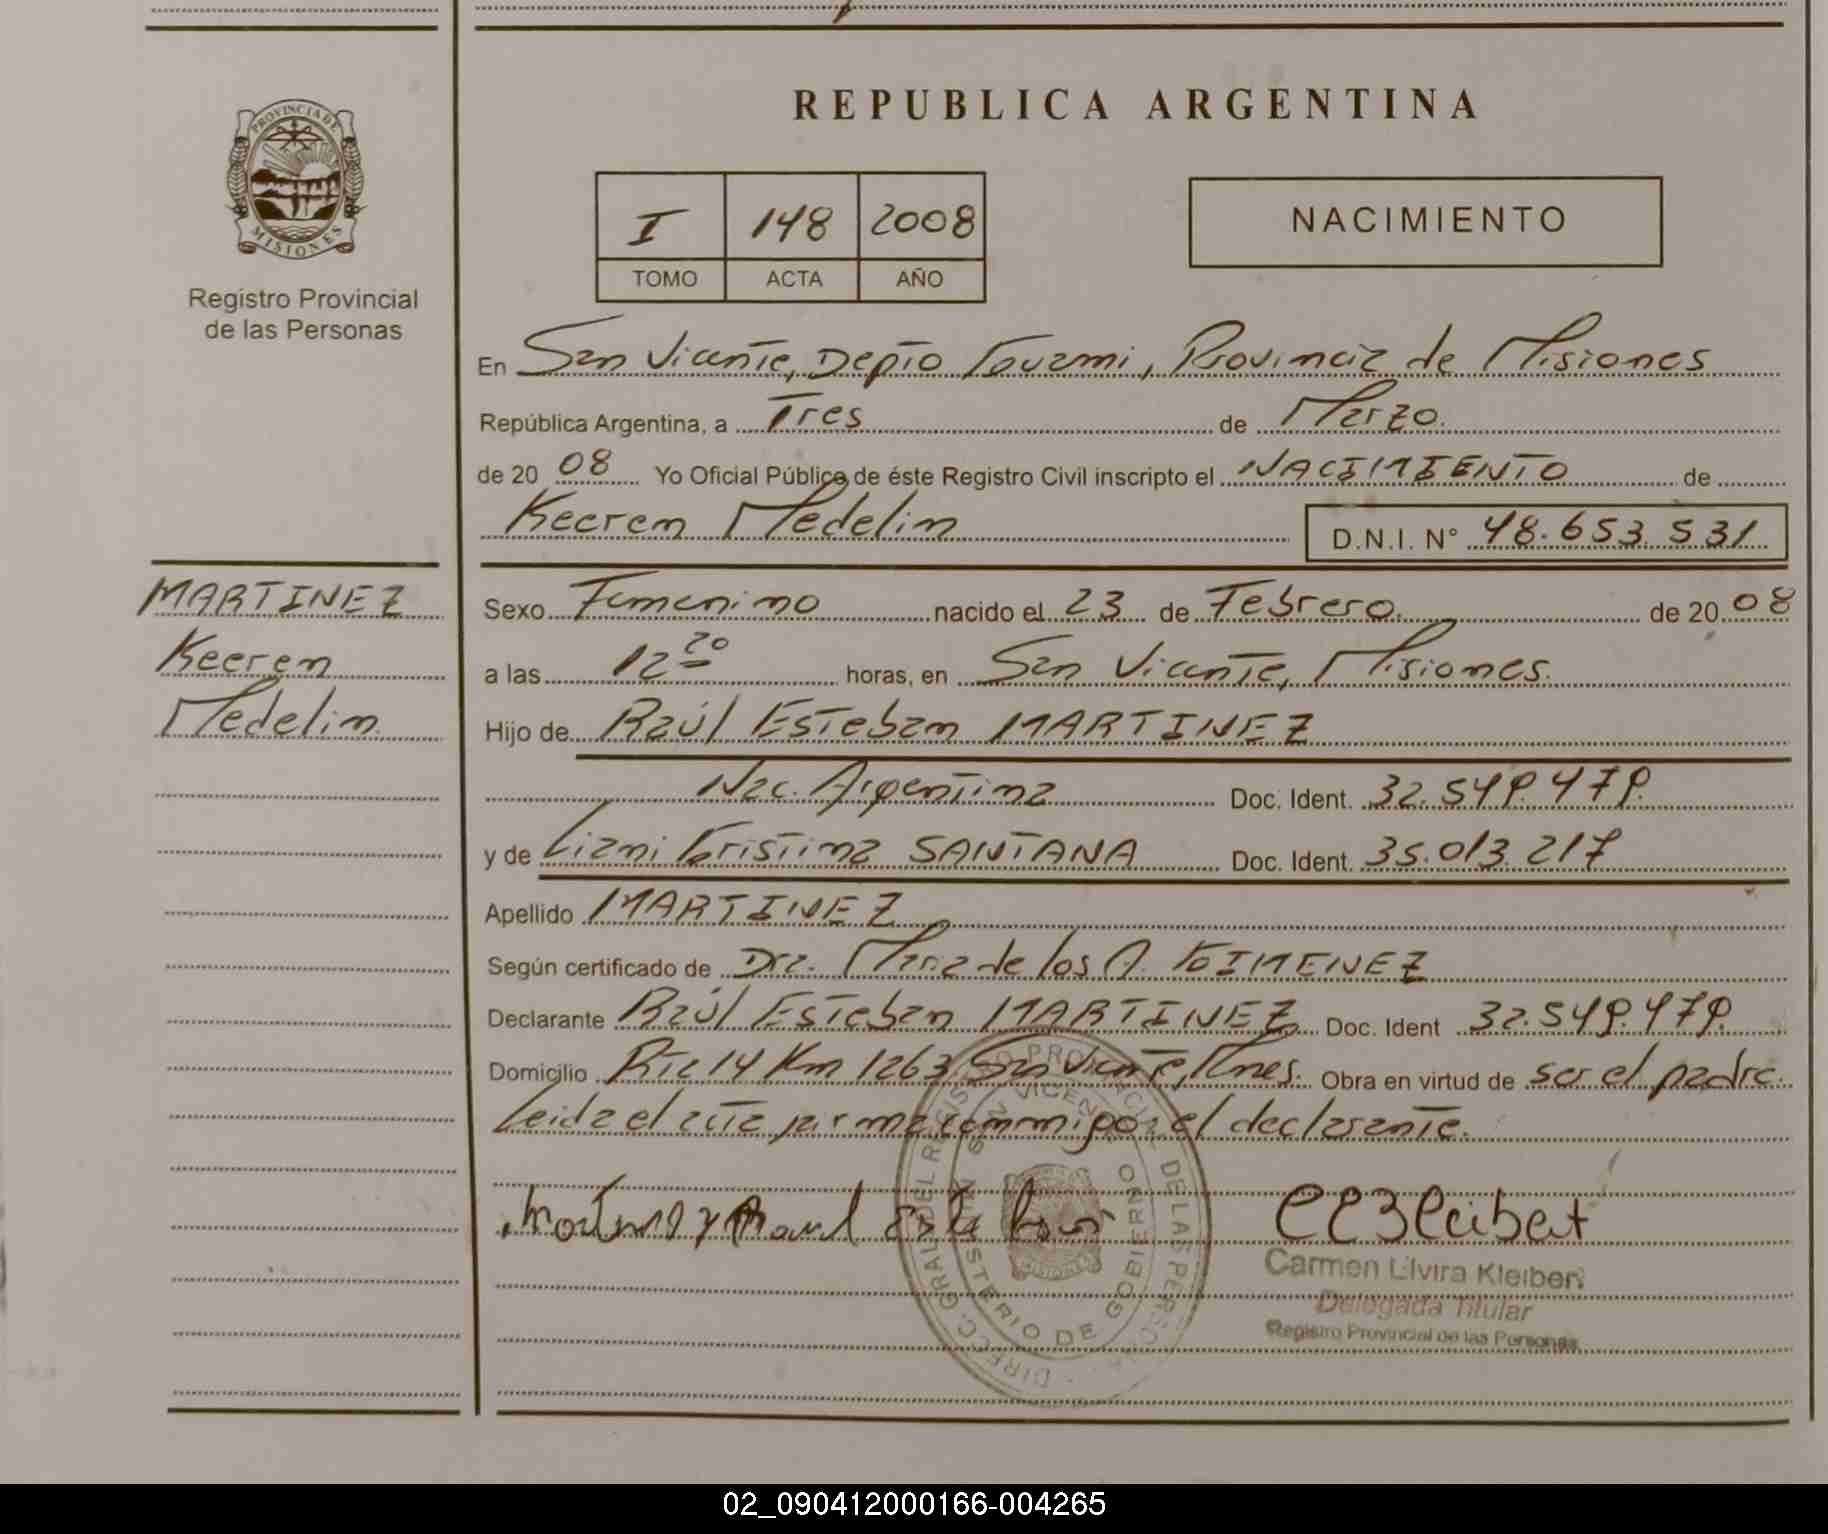 PROVINCIA DE
MISIONES
Registro Provincial
de las Personas
REPUBLICA ARGENTINA
I 148 2008
TOMO ACTA AÑO
NACIMIENTO
En San Vicente, Depto Guarani, Provincia de Misiones
República Argentina, a Tres de Marzo.
de 20 08 Yo Oficial Público de éste Registro Civil inscripto el NACIMIENTO de
Keeren Medelin D.N.I. N° 48.653.531
MARTINEZ
Keeren
Medelin
Sexo Femenino nacido el 23 de Febrero. de 20 08
a las 12 20 horas, en San Vicente, Misiones.
Hijo de Raúl Esteban MARTINEZ
Nac. Argentina Doc. Ident. 32.549.479.
y de Liani Cristina SANTANA Doc. Ident. 35.013.217
Apellido MARTINEZ
Según certificado de Dra. Maria de los A. GIMENEZ
Declarante Raúl Esteban MARTINEZ Doc. Ident 32.549.479.
Domicilio Rta 14 Km 1263 San Vicente, Mnes. Obra en virtud de ser el padre.
Leida el acta firma conmigo el declarante.
Martinez Raul Esteban
Carmen Elvira Kleibert
Delegada Titular
Registro Provincial de las Personas
DIRECC. GRAL. DEL REGISTRO PROVINCIAL DE LAS PERSONAS
SAN VICENTE
MINISTERIO DE GOBIERNO
MISIONES
02_090412000166-004265